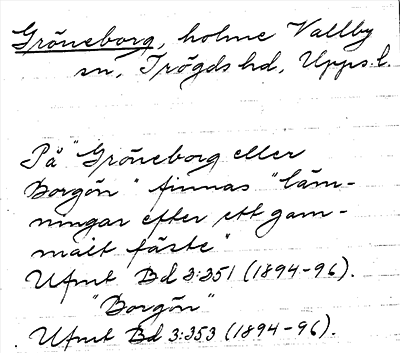 Gröneborg, holme Vallby
sn, Trögds hd, Upps. l.
På "Gröneborg eller
Borgön" finnas "läm-
ningar efter ett gam-
malt fäste"
Ufmt Bd 3:251 (1894-96).
"Borgön"
Ufmt Bd 3:353 (1894-96).